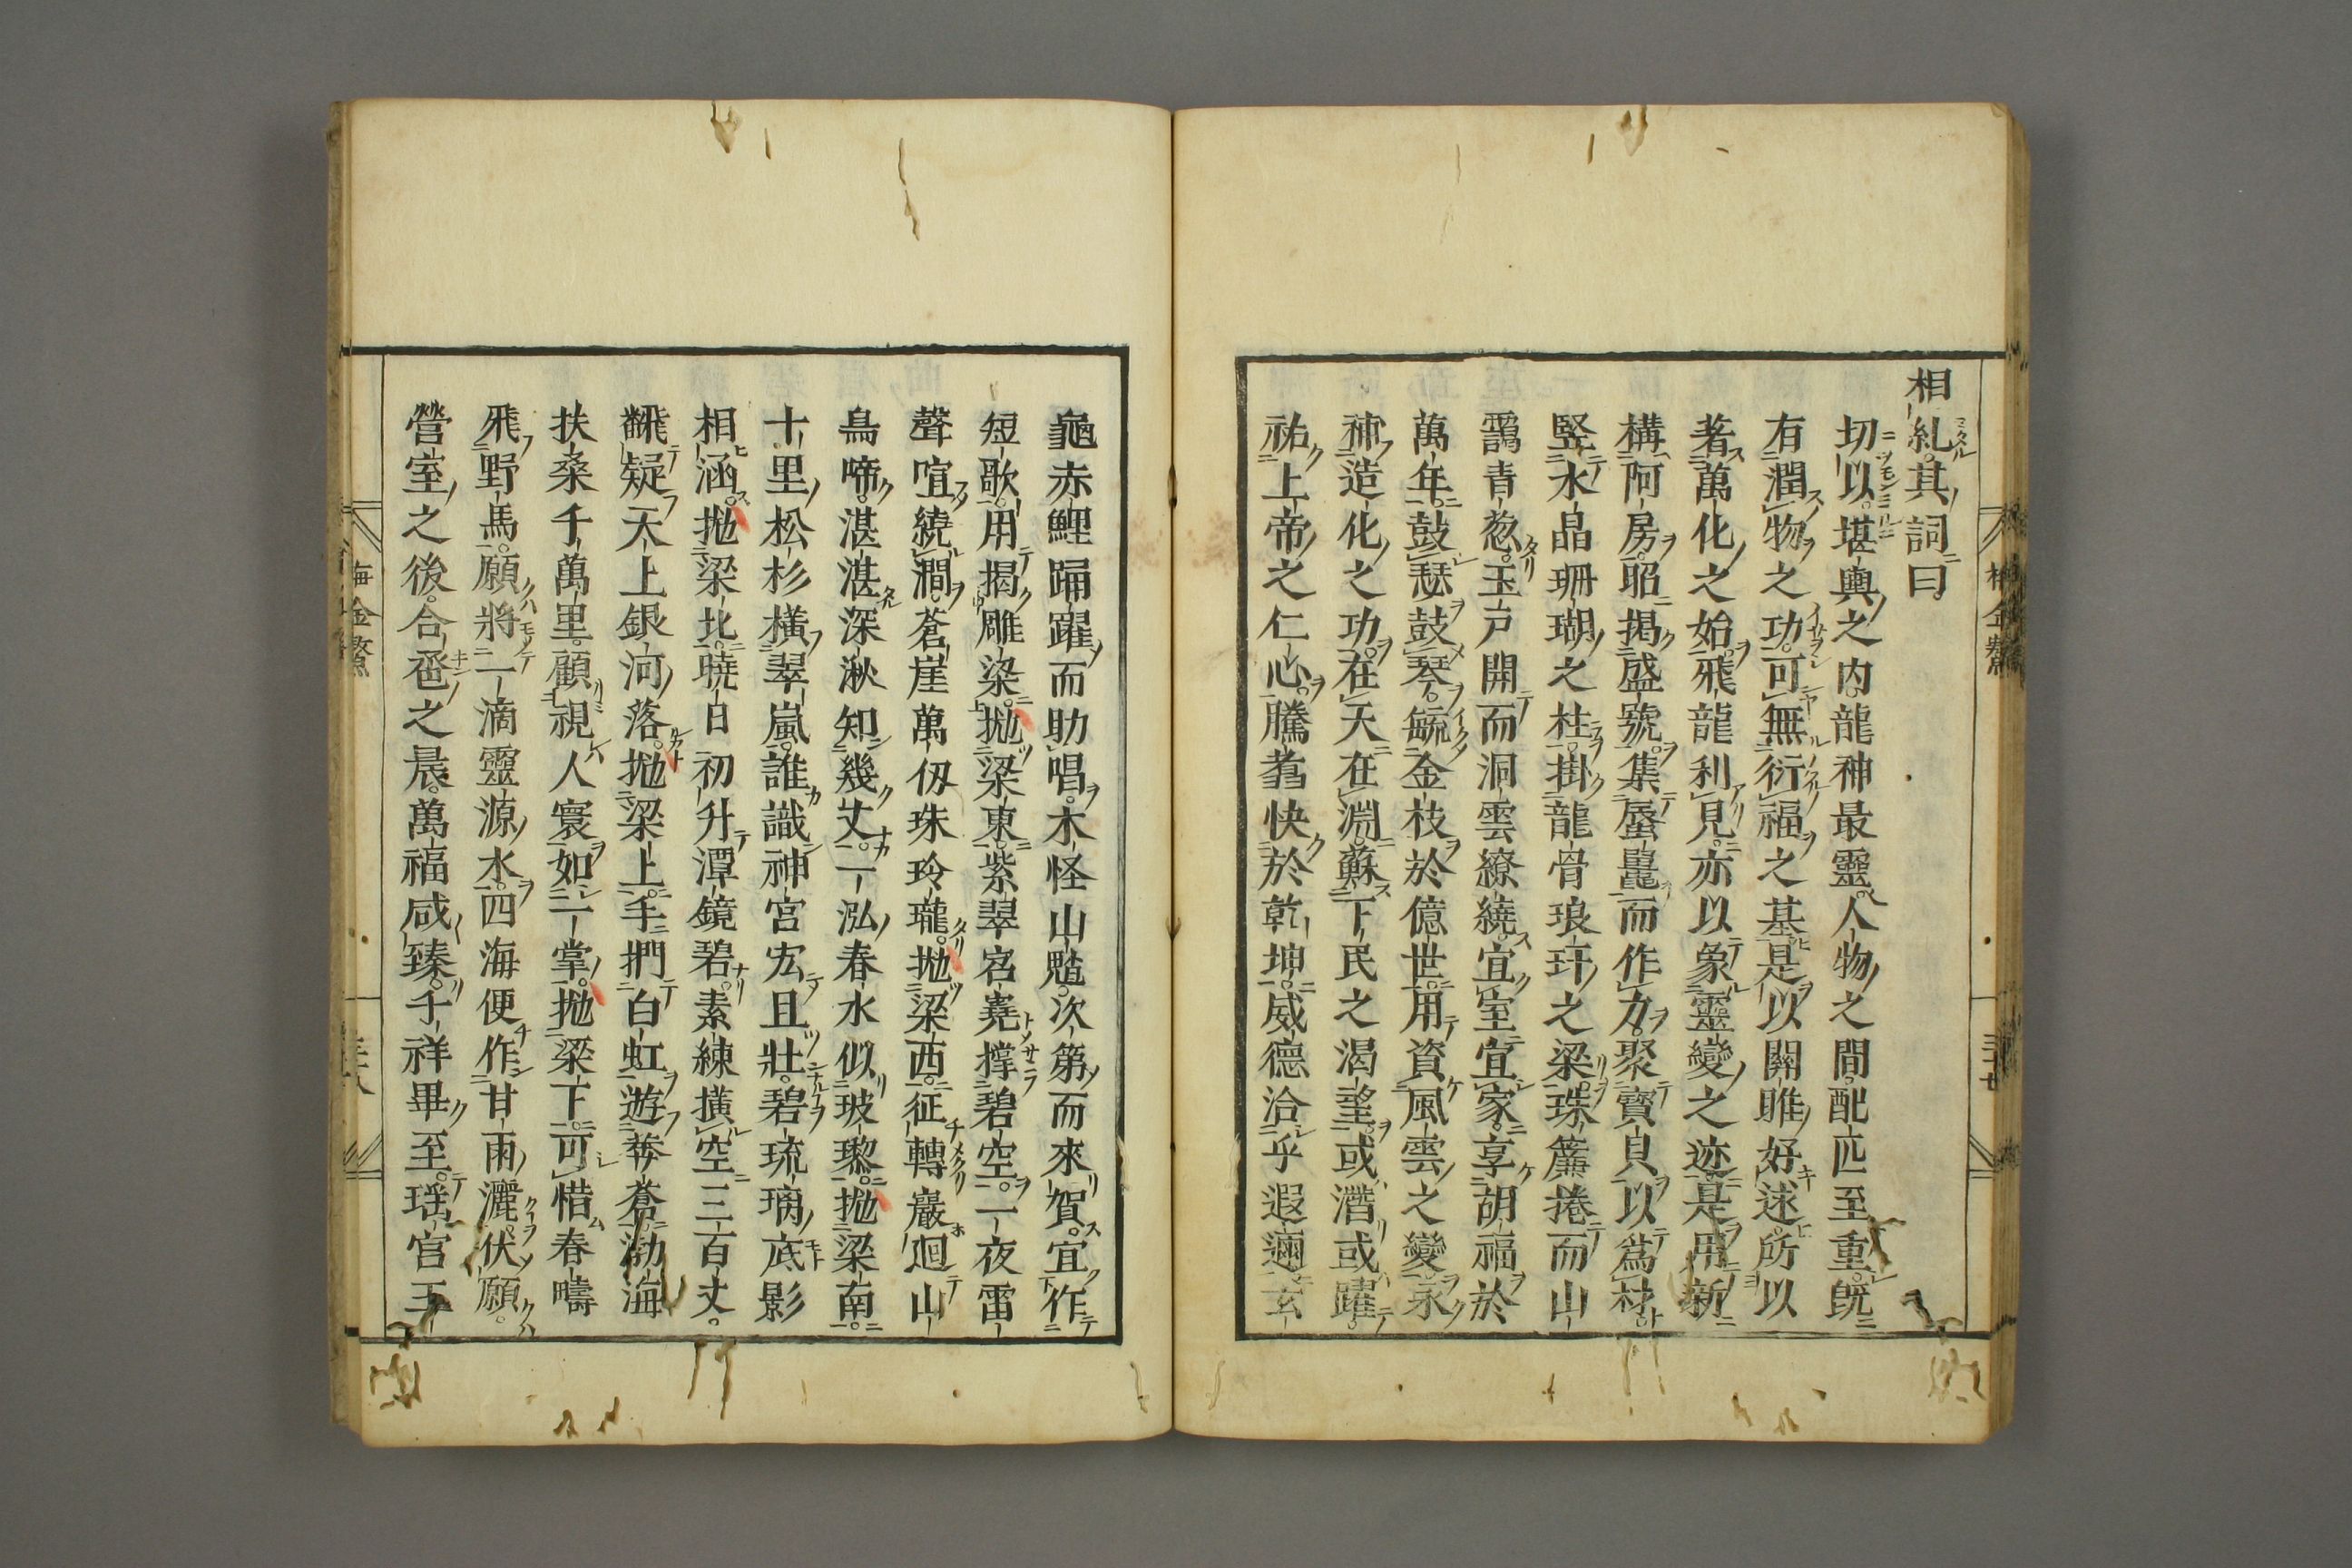 相糺其詞曰
切以堪輿之内龍神最靈人物之間配匹至重既
有潤物之功可無衍福之基是以關雎好逑所以
著萬化之始飛龍利見亦以象靈變之迹是用新
構阿房昭揭盛號集蜃鼉而作力聚寶貝以爲材
竪水晶珊瑚之柱掛龍骨琅玕之梁珠簾捲而山
靄青葱玉戸開而洞雲繚繞宜室宜家享胡福於
萬年鼓瑟鼓琴毓金枝於億世用資風雲之變永
神造化之功在天在淵蘇下民之渇望或潛或躍
祐上帝之仁心騰翥快於乾坤威德洽乎遐邇玄
龜赤鯉踊躍而助唱木怪山魈次第而來賀宜作
短歌用揭雕梁抛梁東紫翠岧嶤撑碧空一夜雷
聲喧繞澗蒼崖萬仭珠玲瓏抛梁西征轉巖廻山
鳥啼湛湛深湫知幾丈一泓春水似玻瓈抛梁南
十里松杉橫翠嵐誰識神宮宏且壯碧琉璃底影
相涵抛梁北曉日初升潭鏡碧素練橫空三百丈
飜疑天上銀河落抛梁上手捫白虹遊莽蒼渤海
扶桑千萬里顧視人寰如一掌抛梁下可惜春疇
飛野馬願將一滴靈源水四海便作甘雨灑伏願
營室之後合巹之晨萬福咸臻千祥畢至瑶宮玉